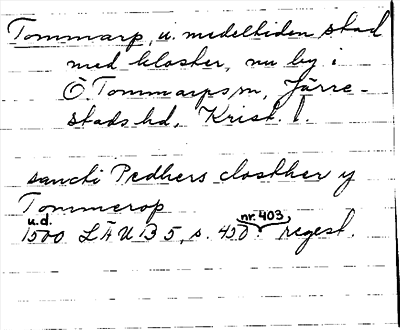 Tommarp, u. medeltiden stad
med kloster, nu by i
Ö. Tommarps sn, Järre-
stads hd, Krist. l.
sancti Pedhers closther y
Tommerop
u.d. nr. 403
1500 LÄU B 5, s. 450 regest.